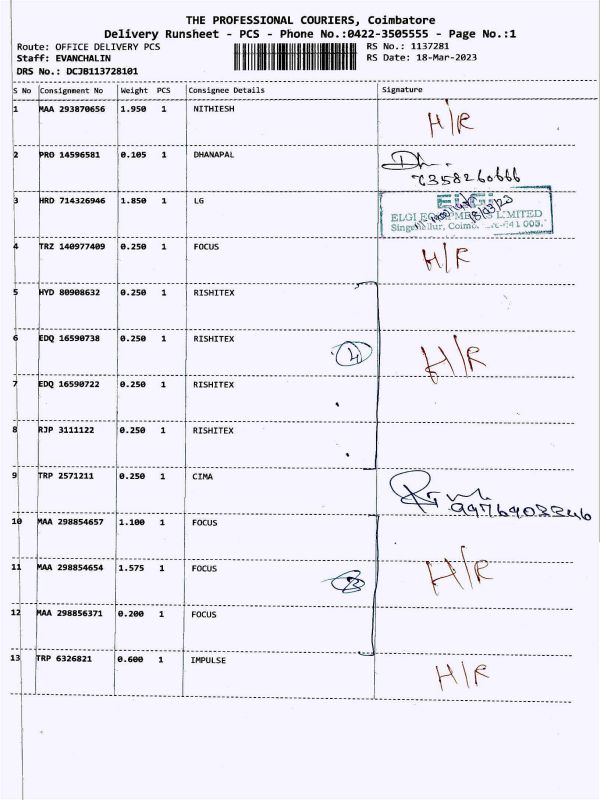 THE PROFESSIONAL COURIERS, Coimbatore
Delivery Runsheet - PCS - Phone No.:0422-3505555 - Page No.:1
Route: OFFICE DELIVERY PCS RS No.: 1137281
Staff: EVANCHALIN RS Date: 18-Mar-2023
DRS No.: DCJB113728101
S No Consignment No Weight PCS Consignee Details Signature
1 MAA 293870656 1.950 1 NITHIESH H/R
2 PRO 14596581 0.105 1 DHANAPAL Dh
7358260666
3 HRD 714326946 1.850 1 LG ELGi
18/03/23
ELGI EQUIPMENTS LIMITED
Singanallur, Coimbatore-641 005.
4 TRZ 140977409 0.250 1 FOCUS H/R
5 HYD 80908632 0.250 1 RISHITEX
6 EDQ 16590738 0.250 1 RISHITEX 4 H/R
7 EDQ 16590722 0.250 1 RISHITEX
8 RJP 3111122 0.250 1 RISHITEX
9 TRP 2571211 0.250 1 CIMA
10 MAA 298854657 1.100 1 FOCUS
11 MAA 298854654 1.575 1 FOCUS 3 H/R
12 MAA 298856371 0.200 1 FOCUS
13 TRP 6326821 0.600 1 IMPULSE H/R